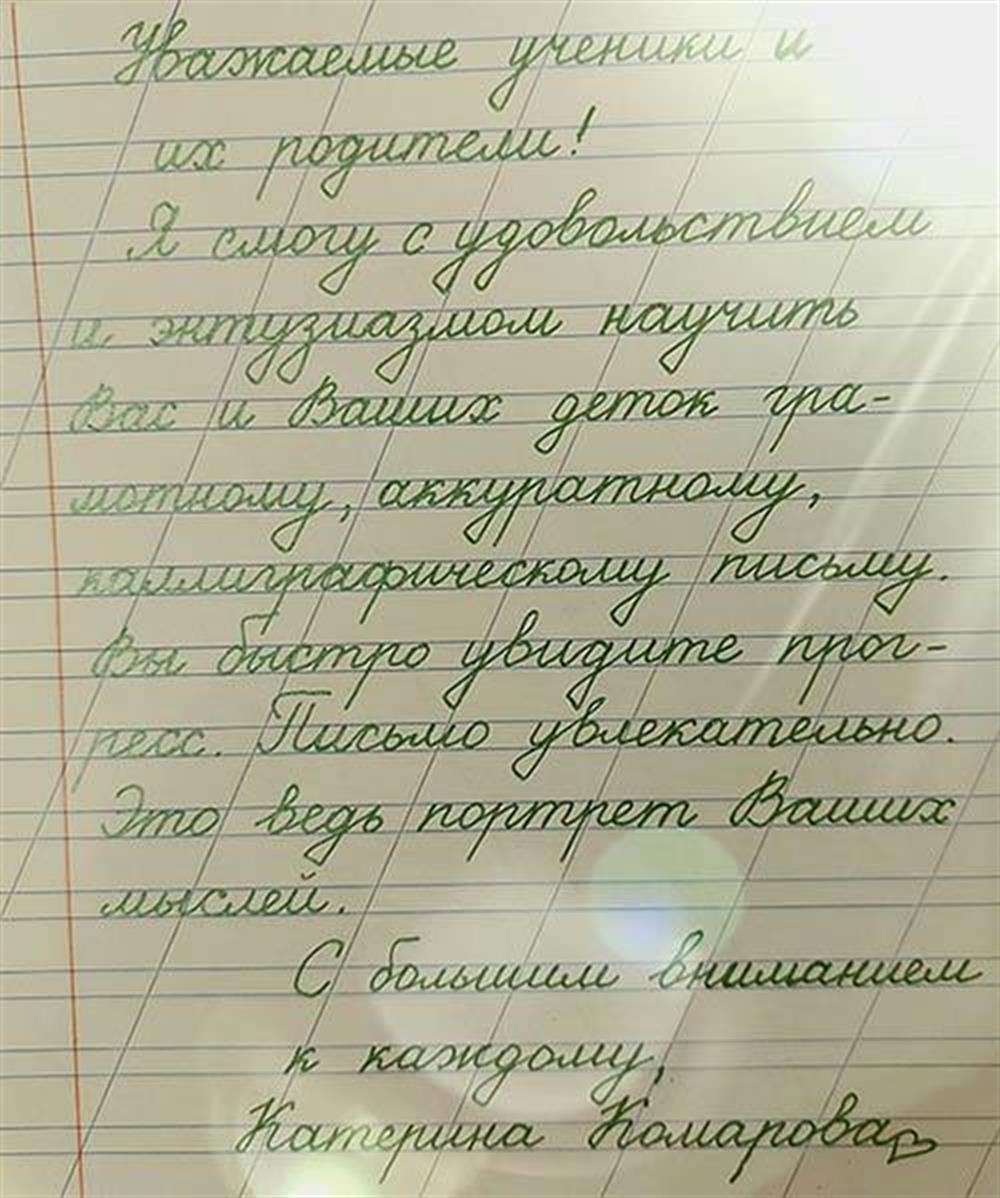 Уважаемые ученики и
их родители!
Я смогу с удовольствием
и энтузиазмом научить
Вас и Ваших деток гра-
мотному, аккуратному,
каллиграфическому письму.
Вы быстро увидите прог-
ресс. Письмо увлекательно.
Это ведь портрет Ваших
мыслей.
С большим вниманием
к каждому,
Катерина Комарова